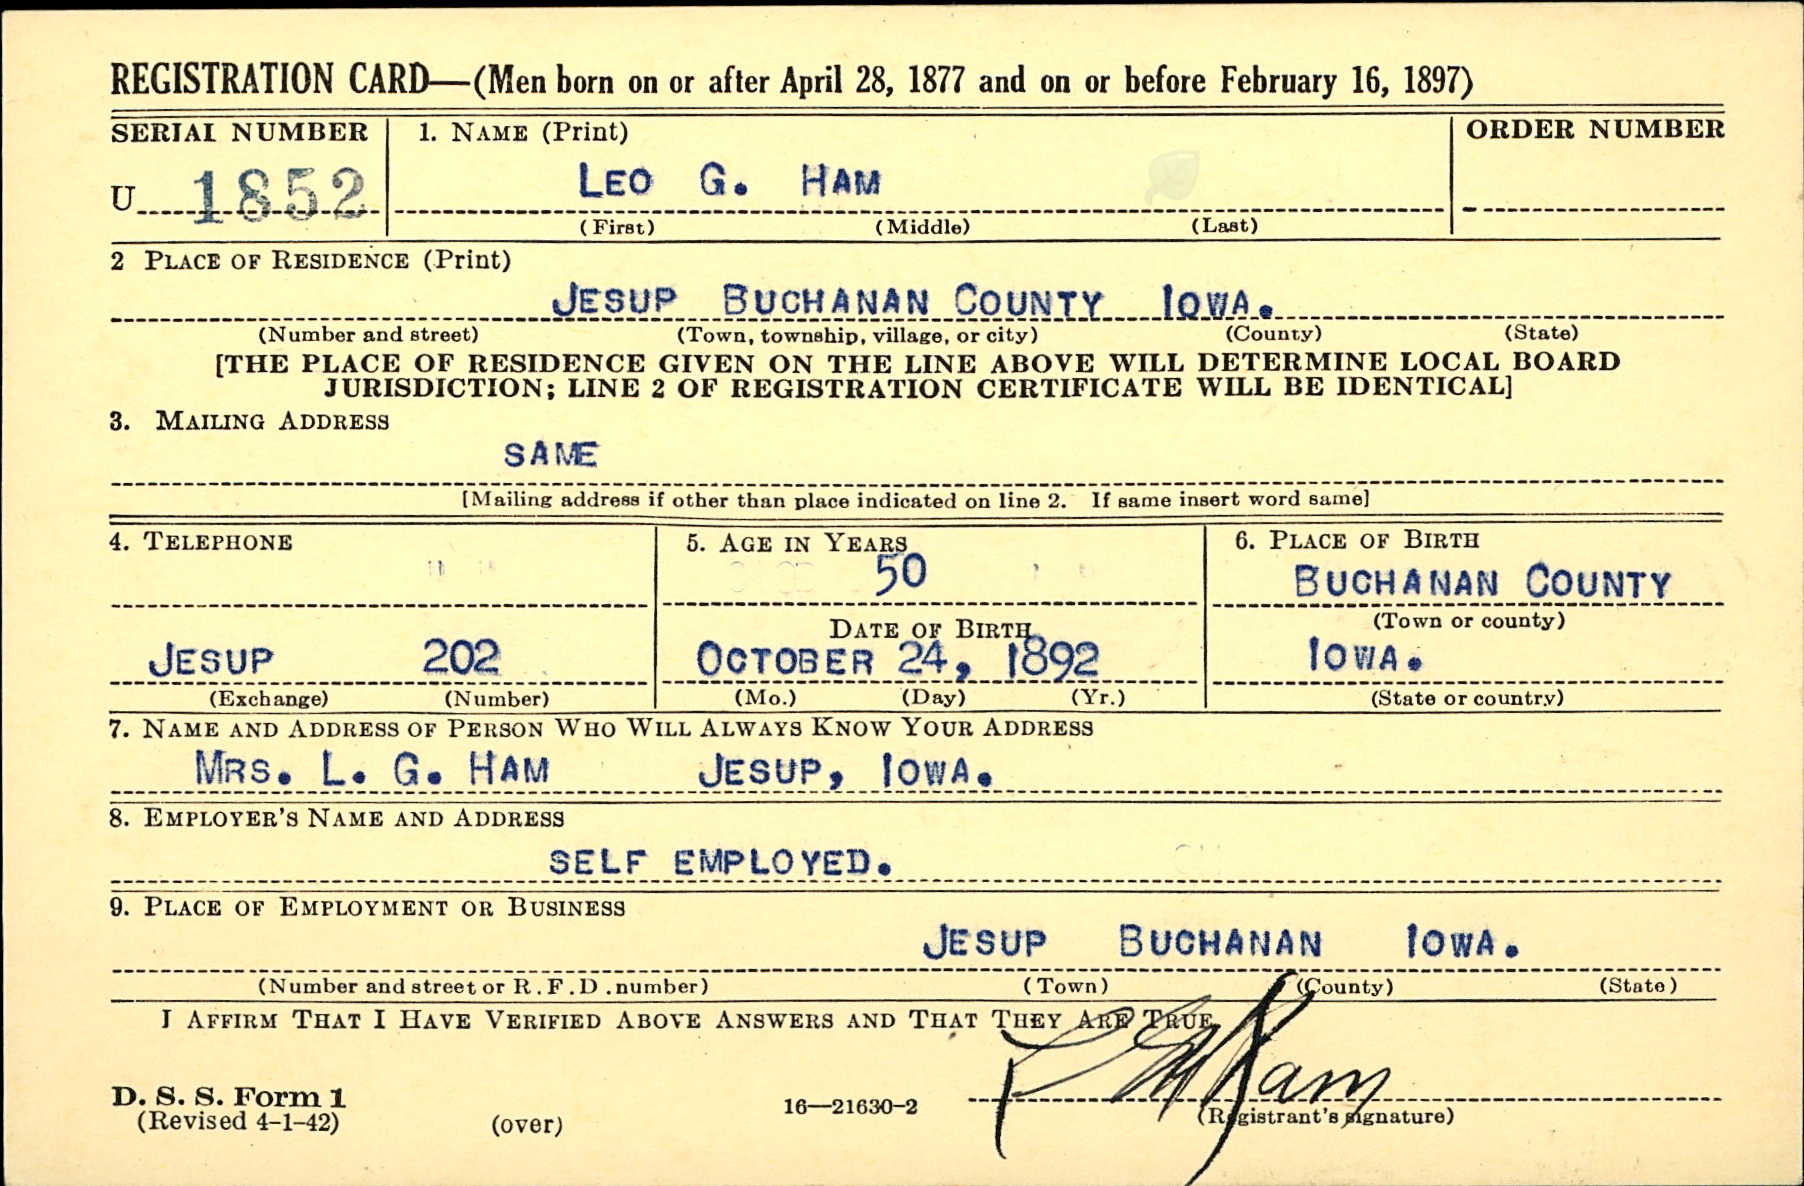 REGISTRATION CARD—(Men born on or after April 28, 1877 and on or before February 16, 1897)
SERIAL NUMBER 1. NAME (Print) ORDER NUMBER
U 1852 LEO G. HAM
(First) (Middle) (Last)
2 PLACE OF RESIDENCE (Print)
JESUP BUCHANAN COUNTY IOWA.
(Number and street) (Town, township, village, or city) (County) (State)
[THE PLACE OF RESIDENCE GIVEN ON THE LINE ABOVE WILL DETERMINE LOCAL BOARD
JURISDICTION; LINE 2 OF REGISTRATION CERTIFICATE WILL BE IDENTICAL]
3. MAILING ADDRESS
SAME
[Mailing address if other than place indicated on line 2. If same insert word same]
4. TELEPHONE 5. AGE IN YEARS 6. PLACE OF BIRTH
50 BUCHANAN COUNTY
DATE OF BIRTH (Town or county)
JESUP 202 OCTOBER 24, 1892 IOWA.
(Exchange) (Number) (Mo.) (Day) (Yr.) (State or country)
7. NAME AND ADDRESS OF PERSON WHO WILL ALWAYS KNOW YOUR ADDRESS
MRS. L. G. HAM JESUP, IOWA.
8. EMPLOYER'S NAME AND ADDRESS
SELF EMPLOYED.
9. PLACE OF EMPLOYMENT OR BUSINESS
JESUP BUCHANAN IOWA.
(Number and street or R.F.D. number) (Town) (County) (State)
I AFFIRM THAT I HAVE VERIFIED ABOVE ANSWERS AND THAT THEY ARE TRUE
L G Ham
D. S. S. Form 1
(Revised 4-1-42) (over) 16—21630-2 (Registrant's signature)